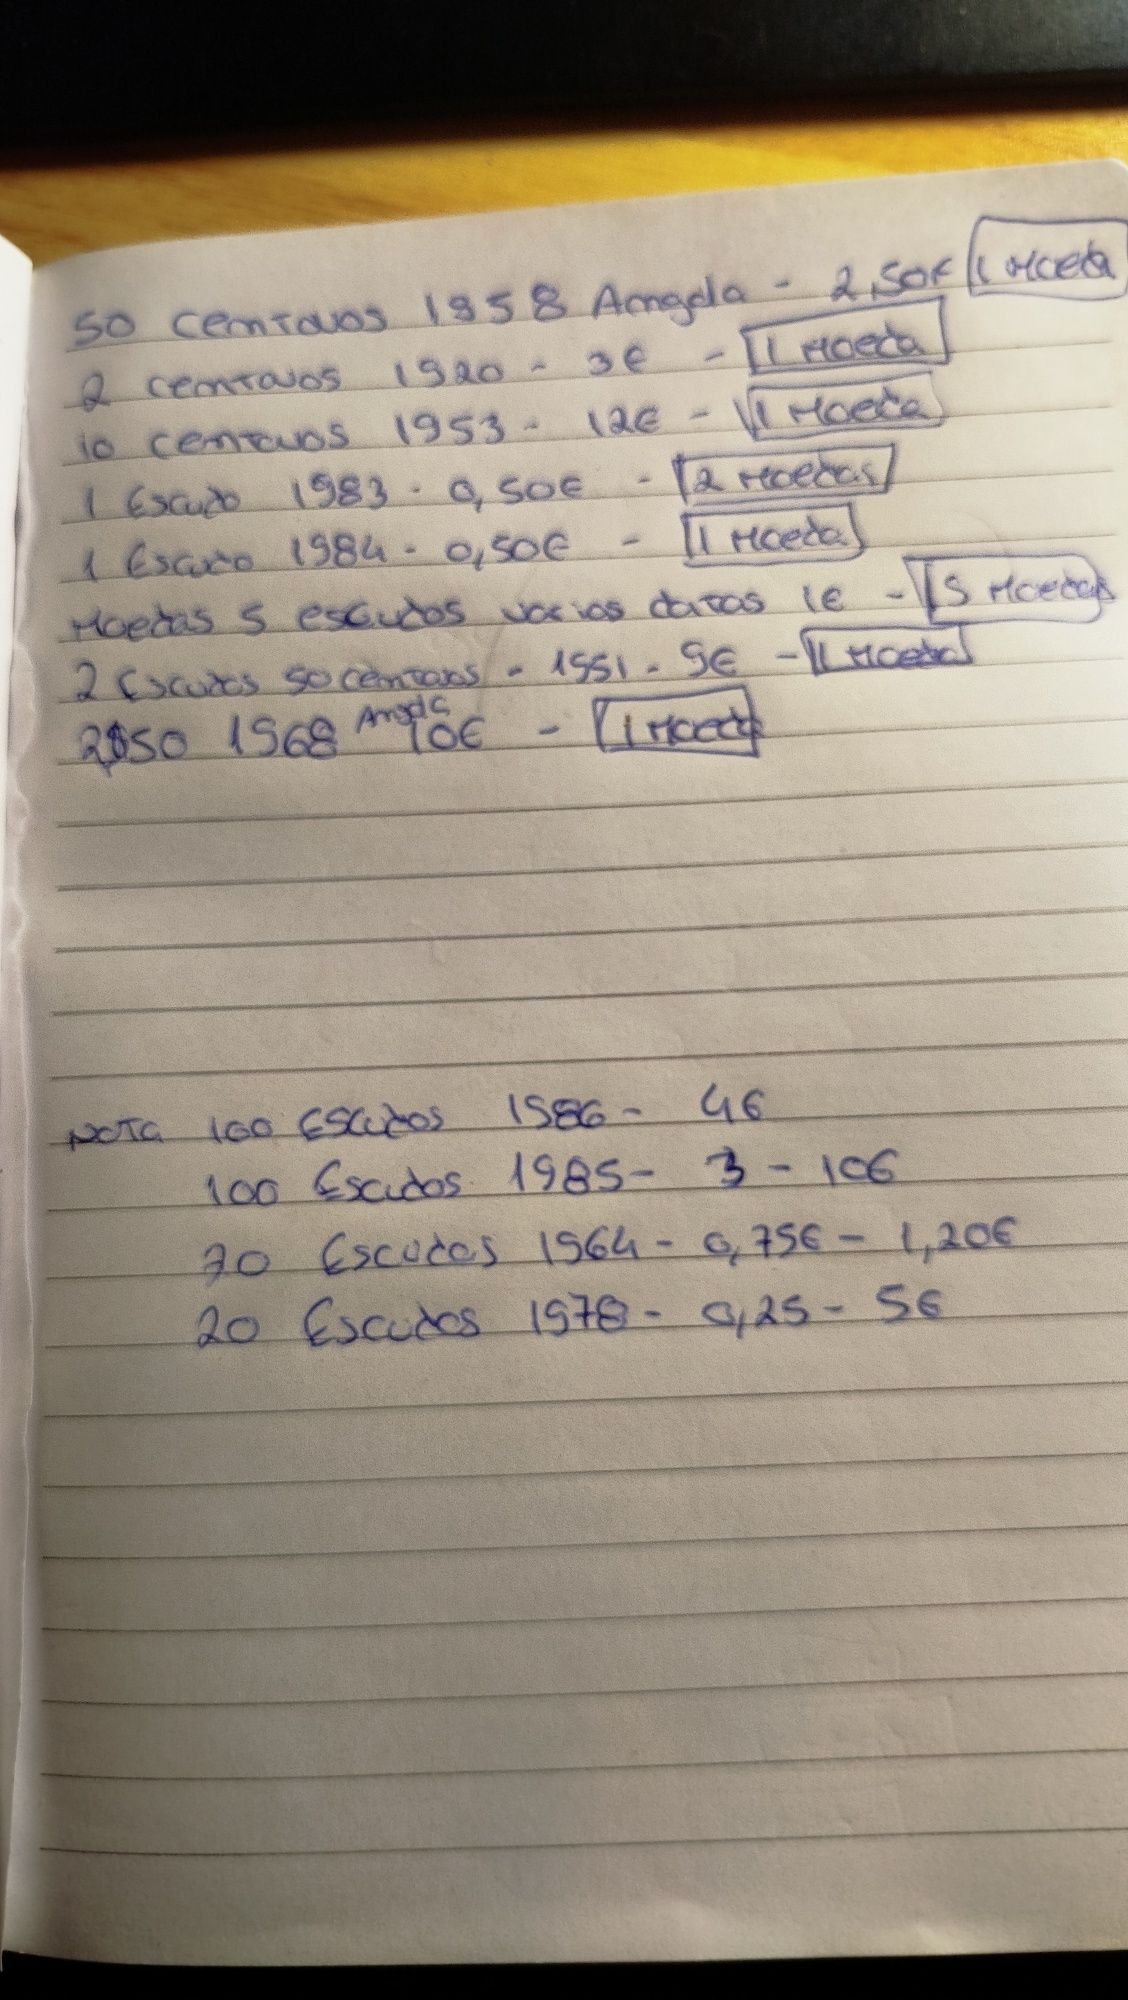 50 centavos 1958 Angola - 2,50€ 1 Moeda
2 centavos 1920 - 3€ - 1 Moeda
10 centavos 1953 - 12€ - 1 Moeda
1 Escudo 1983 - 0,50€ - 2 Moedas
1 Escudo 1984 - 0,50€ - 1 Moeda
Moedas 5 escudos varias datas 1€ - 5 Moedas
2 Escudos 50 centavos - 1951 - 9€ - 1 Moeda
2$50 1968 Angola 10€ - 1 Moeda
NOTA 100 Escudos 1986 - 4€
100 Escudos 1985 - 3 - 10€
20 Escudos 1964 - 0,75€ - 1,20€
20 Escudos 1978 - 0,25 - 5€